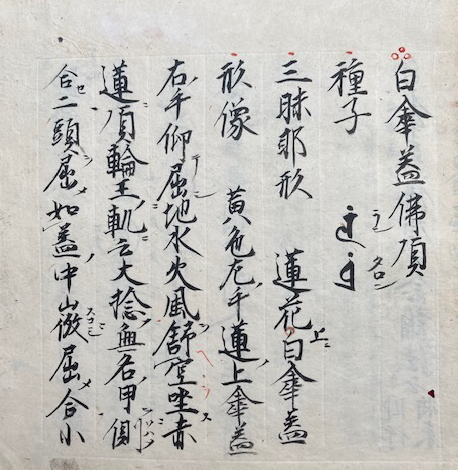 白傘蓋佛頂
種子 ラン タロン
三昧耶形 蓮花上ニ白傘蓋
形像 黄色左手蓮上傘蓋
右手仰屈地水火風舒空坐赤
蓮頂輪王軌云大捻無名甲側
合二頭屈如蓋中微屈合小